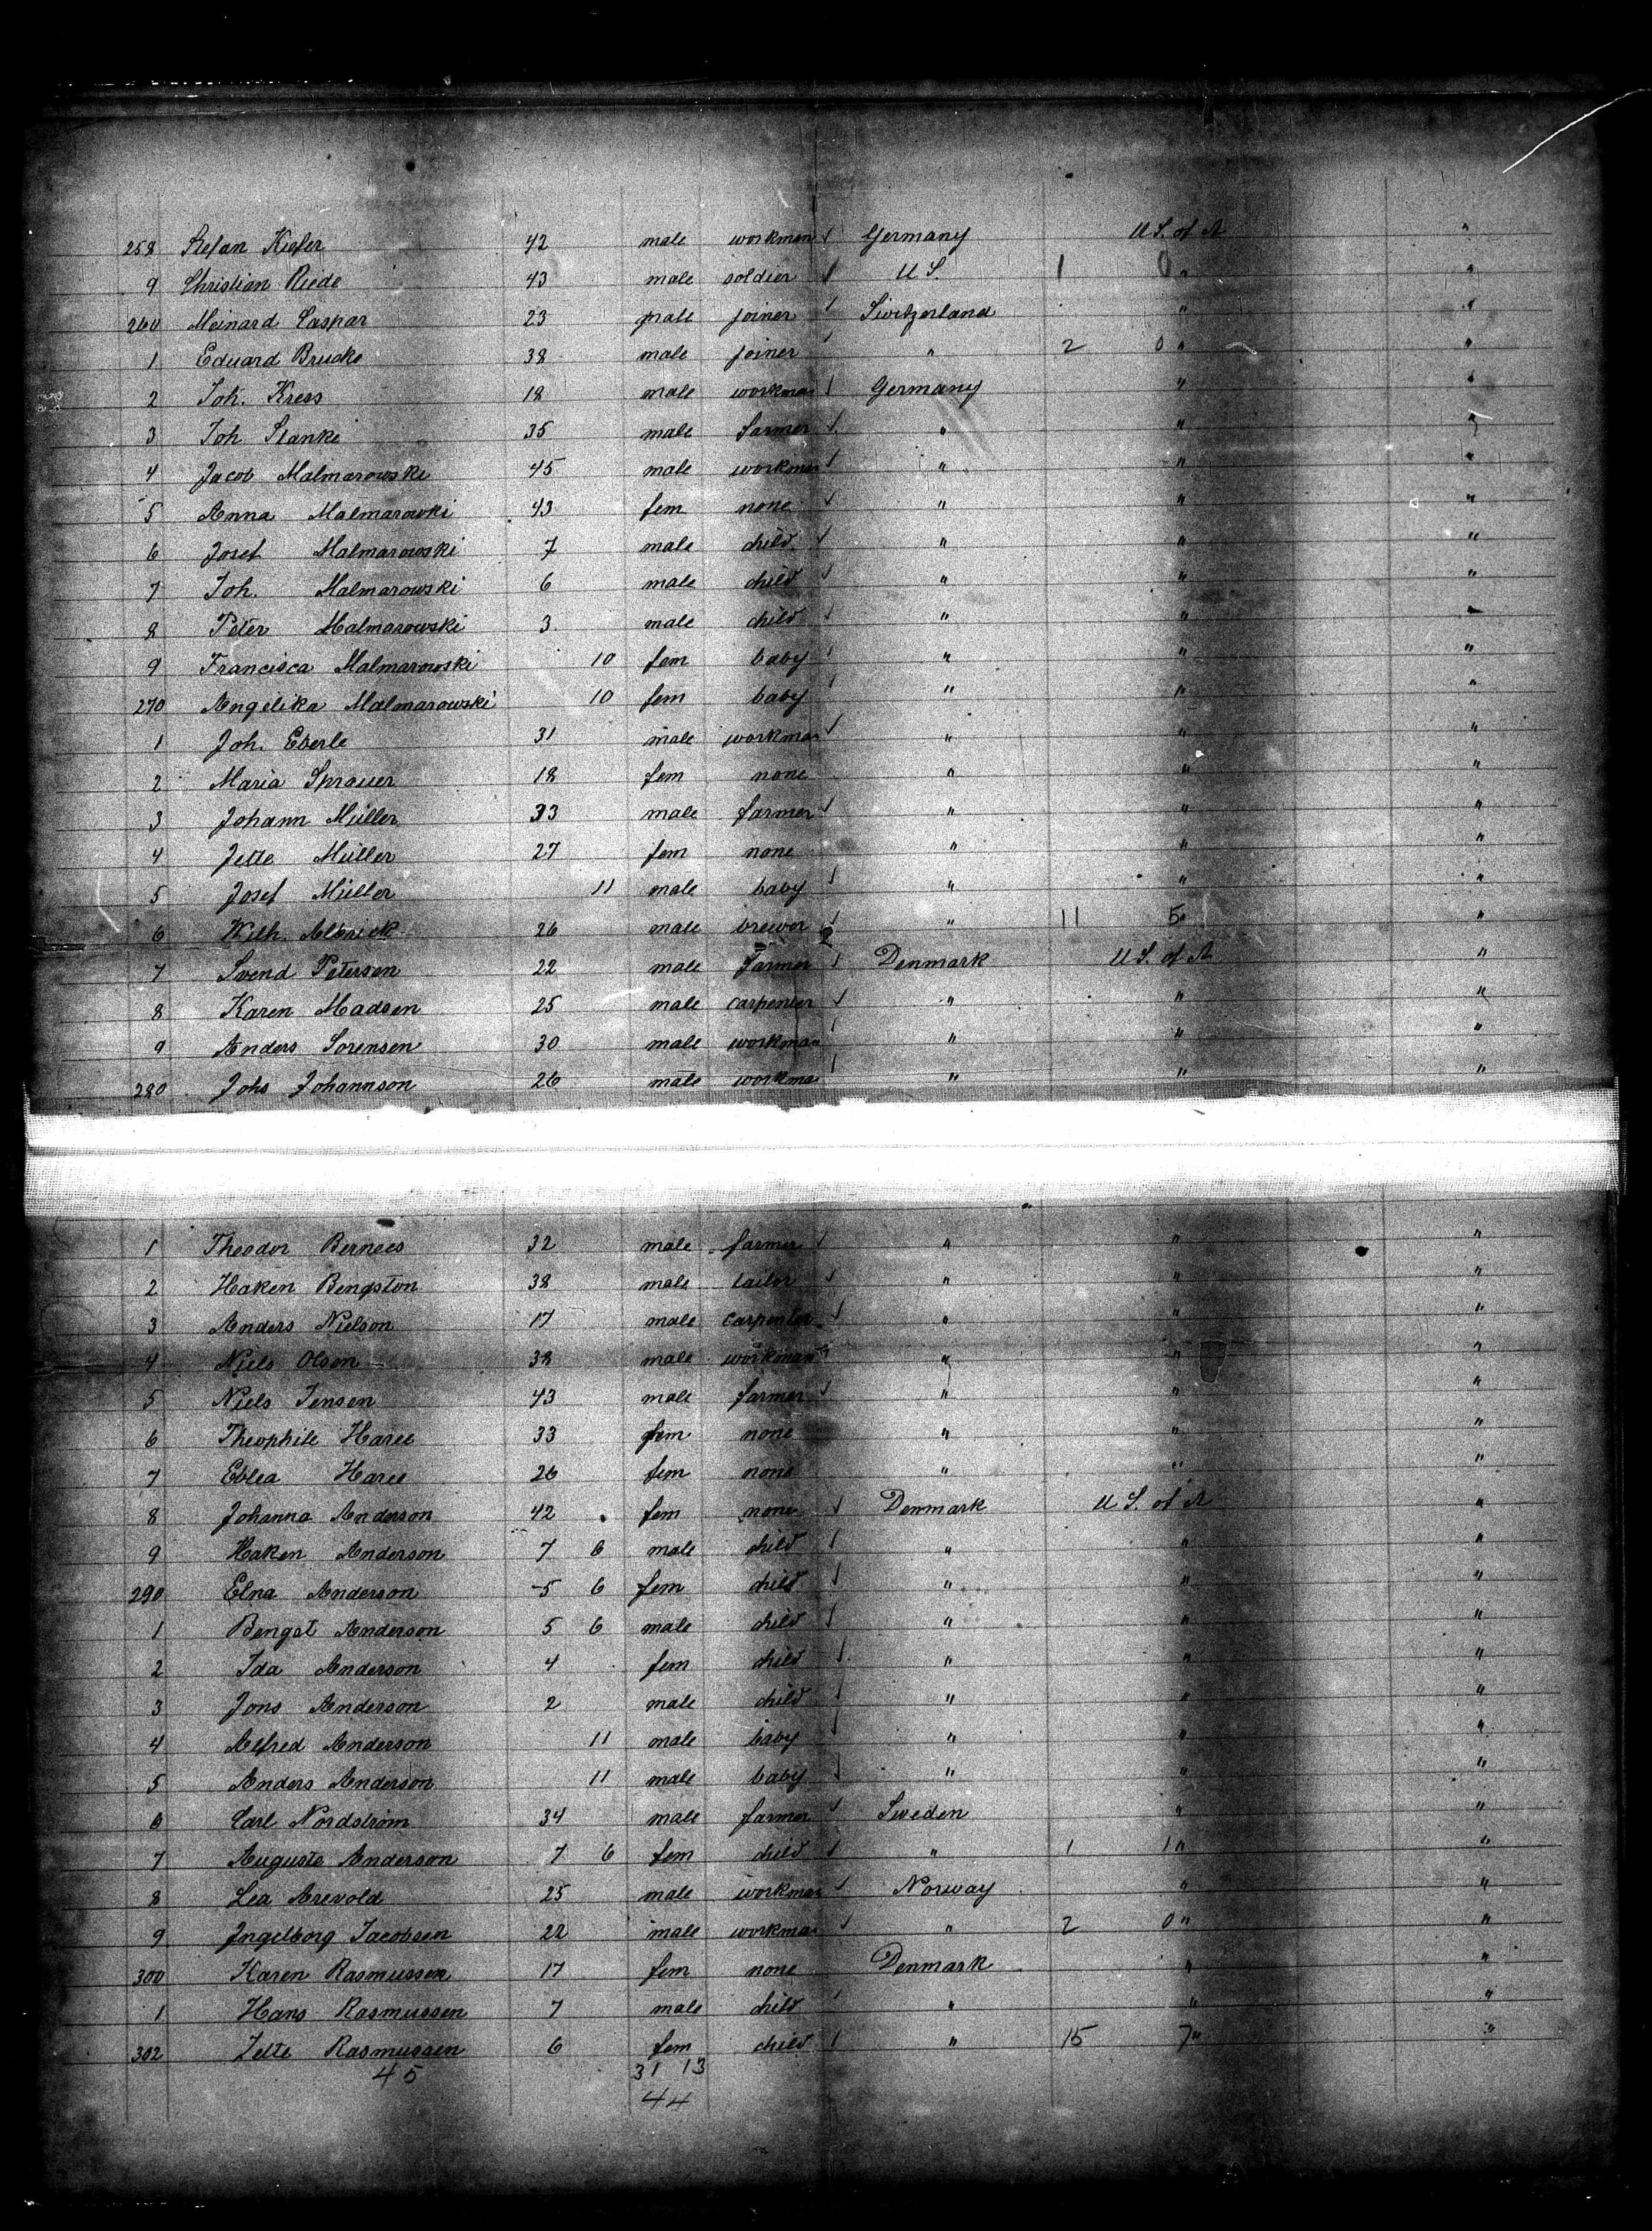 258 Stefan Kiefer 42 male workman Germany U S. of A "
9 Christian Riede 43 male soldier U S. 1 0 " "
260 Meinard Caspar 23 male joiner Switzerland " "
1 Eduard Brucke 38 male joiner " 2 0 " "
2 Joh. Kress 18 male workman Germany " "
3 Joh Stanke 35 male farmer " " "
4 Jacob Malmarowski 45 male workman " " "
5 Anna Malmarowki 43 fem none " " "
6 Josef Malmarowski 7 male child " " "
7 Joh. Malmarowski 6 male child " " "
8 Peter Malmarowski 3 male child " " "
9 Francisca Malmarowski 10 fem baby " " "
270 Angelika Malmarowski 10 fem baby " " "
1 Joh. Eberle 31 male workman " " "
2 Maria Sprauer 18 fem none " " "
3 Johann Müller 33 male farmer " " "
4 Jette Müller 27 fem none " " "
5 Josef Müller 11 male baby " " "
6 Wilh. Albrick 26 male brewer " 11 5 " "
7 Svend Petersen 22 male Farmer Denmark U S. of A "
8 Karen Madsen 25 male carpenter " " "
9 Anders Sorensen 30 male workman " " "
280 Johs Johannson 26 male workman " " "
1 Theodor Bernees 32 male farmer " " "
2 Haken Bengston 38 male tailor " " "
3 Anders Nielson 17 male carpenter " " "
4 Niels Olson 38 male workman " " "
5 Niels Jensen 43 male farmer " " "
6 Theophile Haree 33 fem none " " "
7 Eblea Haree 26 fem none " " "
8 Johanna Anderson 42 fem none Denmark U S. of A "
9 Haken Anderson 7 6 male child " " "
290 Elna Anderson 5 6 fem child " " "
1 Bengst Anderson 5 6 male child " " "
2 Ida Anderson 4 fem child " " "
3 Jons Anderson 2 male child " " "
4 Alfred Anderson 11 male baby " " "
5 Anders Anderson 11 male baby " " "
6 Carl Nordström 34 male farmer Sweden " "
7 Auguste Anderson 7 6 fem child " 1 1 " "
8 Lea Arevold 25 male workman Norway " "
9 Ingelborg Jacobsen 22 male workman " 2 0 " "
300 Karen Rasmussen 17 fem none Denmark " "
1 Hans Rasmussen 7 male child " " "
302 Jette Rasmussen 6 fem child " 15 7 " "
45 31 13
44